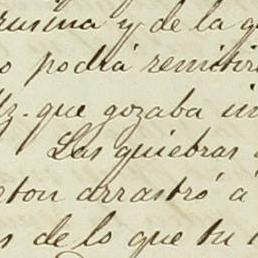 y de la
o podrá remitir
que gozaba in
Las quiebras
rton arrastró á
s de lo que tu